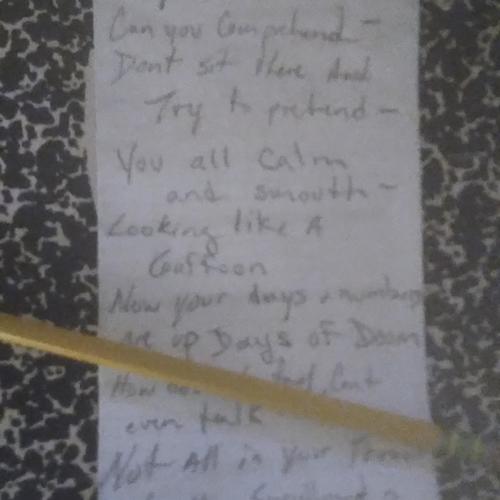 Can you Comprehend -
Dont sit there And
Try to pretend -
You all Calm
and smooth -
Looking like A
Cartoon
Now your days + numbers
are up Days of Doom
How feel, Cant
even talk
Not All in your